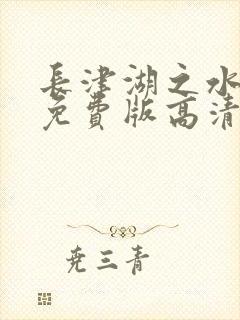 長津湖之水
免費版高清
尭三青